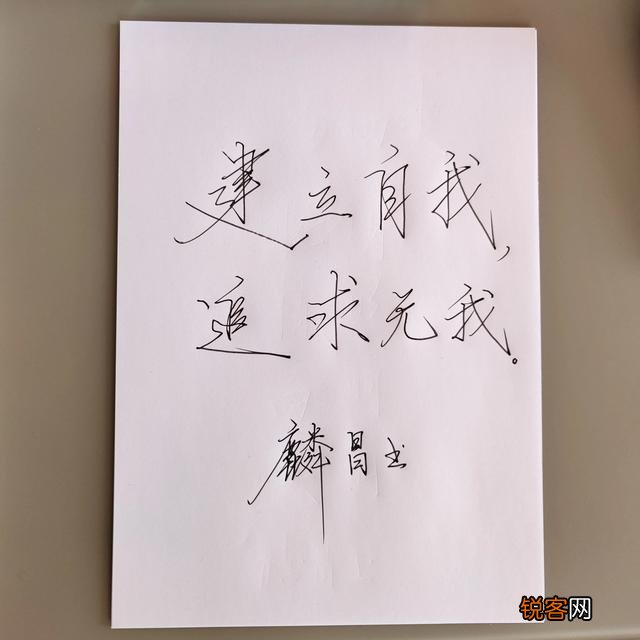 建立自我，
追求无我。
麟昌书
锐客网